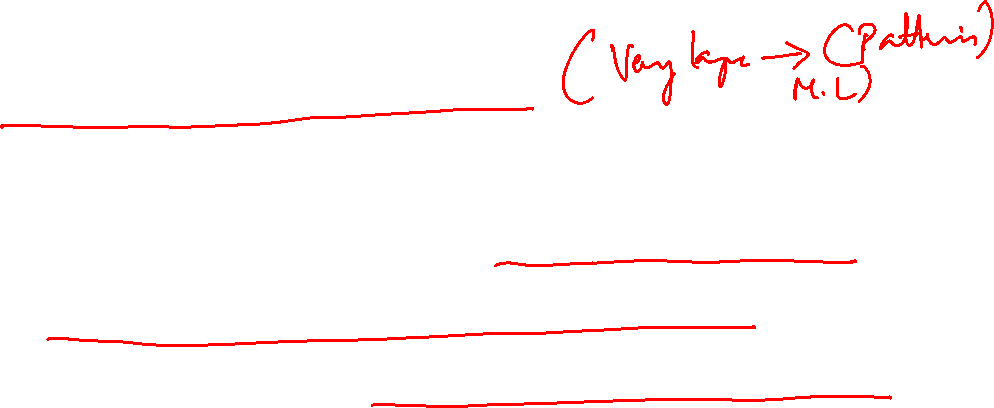 (Very large → (Patterns)
M.L)